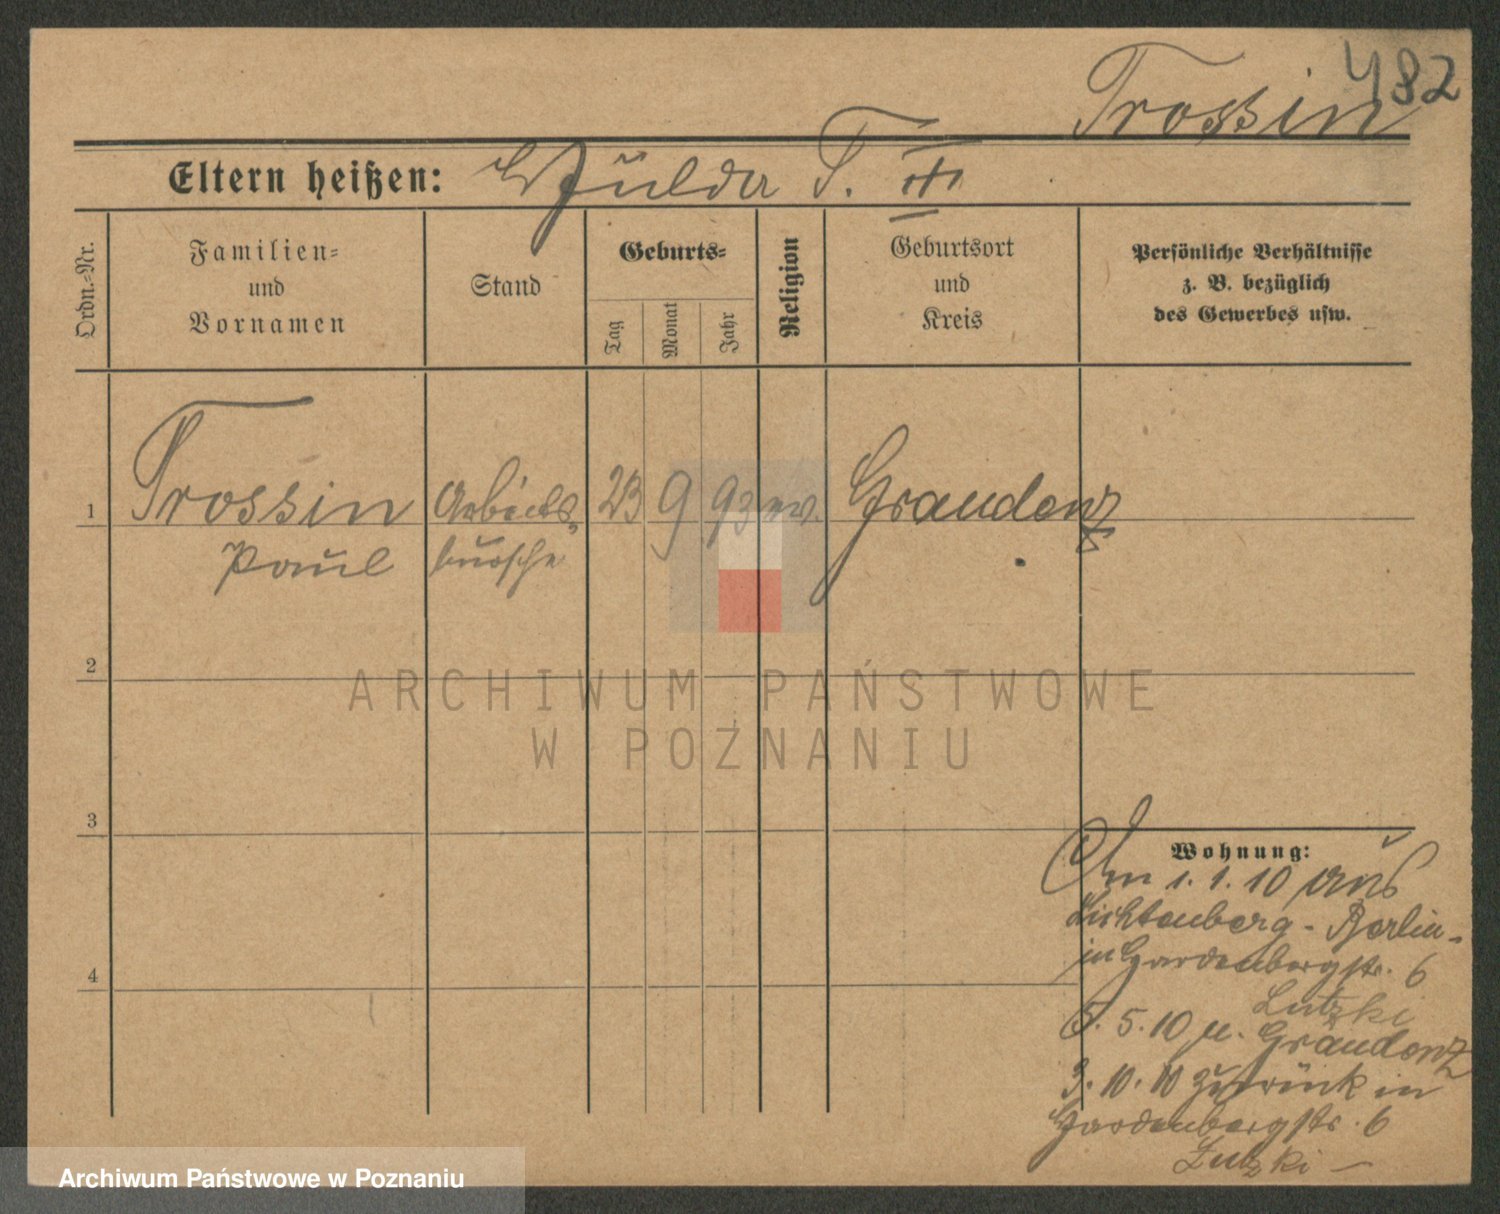 482
Trossin
Eltern heißen: T. III
Ordn.-Nr.
Familien-
und
Vornamen
Stand
Geburts-
Tag
Monat
Jahr
Religion
Geburtsort
und
Kreis
Persönliche Verhältnisse
z. B. bezüglich
des Gewerbes usw.
1 Trossin Arbeits 23 9 93 ev. Graudenz
Paul bursche
2
ARCHIWUM PAŃSTWOWE
W POZNANIU
3
4
Wohnung:
Am 1. 1. 10 aus
Lichtenberg - Berlin -
in Gardenbergstr. 6
Lutzki
5. 5. 10 n. Graudenz
3. 10. 10 zurück in
Gardenbergstr. 6
Lutzki -
Archiwum Państwowe w Poznaniu